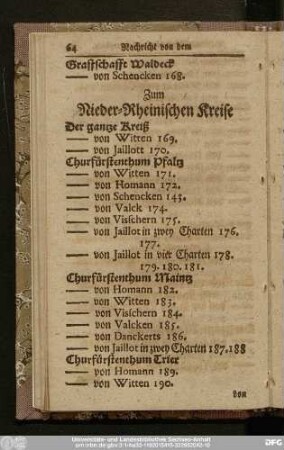 64 Nachricht von dem
Graffschafft Waldeck
— von Schencken 168.
Zum
Nieder-Rheinischen Kreise
Der gantze Kreiß
— von Witten 169.
— von Jaillott 170.
Churfürstenthum Pfaltz
— von Witten 171.
— von Homann 172.
— von Schencken 143.
— von Valck 174.
— von Visschern 175.
— von Jaillot in zwey Charten 176.
177.
— von Jaillot in vier Charten 178.
179. 180. 181.
Churfürstenthum Maintz
— von Homann 182.
— von Witten 183.
— von Visschern 184.
— von Valcken 185.
— von Danckerts 186.
— von Jaillot in zwey Charten 187.188
Churfürstenthum Trier
— von Homann 189.
— von Witten 190.
von
Universitäts- und Landesbibliothek Sachsen-Anhalt